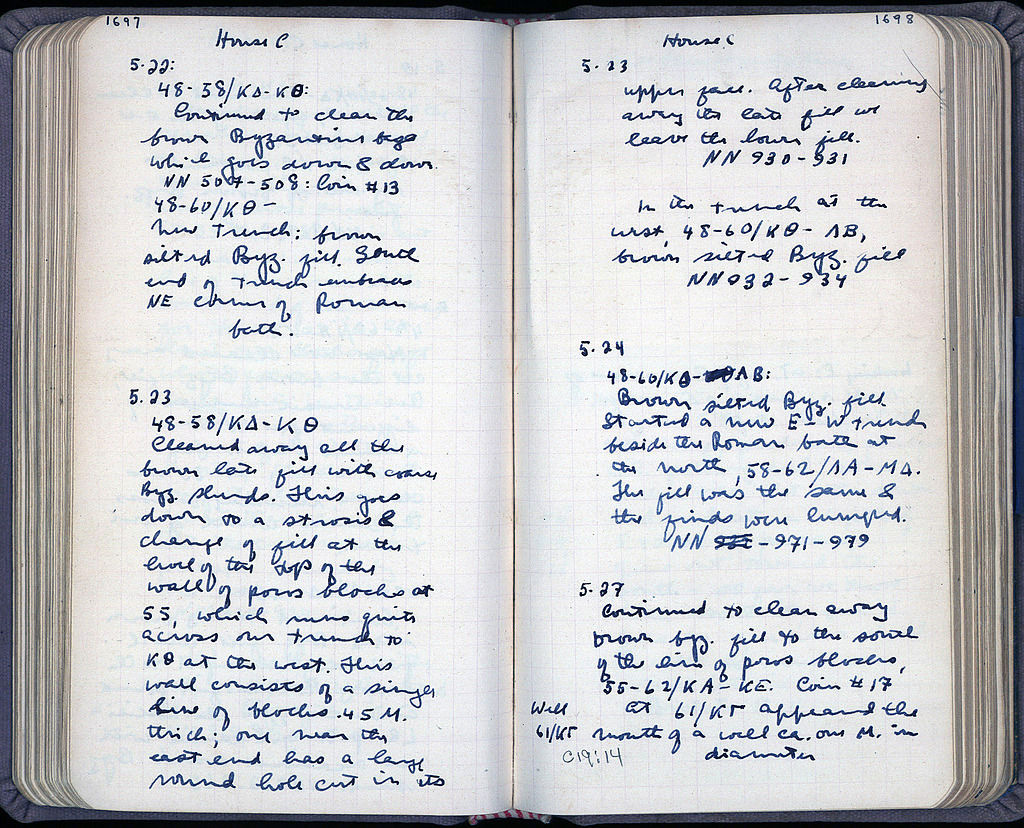 1697
House C
5.22:
48-58/ΚΔ-ΚΘ:
Continued to clean the
brown Byzantine
which goes down & down.
NN 507-508: Coin #13
48-60/ΚΘ-
New Trench: brown
silted Byz. fill. South
end of trench embraces
NE corner of Roman
bath.
5.23
48-58/ΚΔ-ΚΘ
Cleaned away all the
brown late fill with coarse
Byz. sherds. This goes
down to a strosis &
change of fill at the
level of the top of the
wall of poros blocks at
55, which runs quite
across our trench to
ΚΘ at the west. This
wall consists of a single
line of blocks .45 M.
thick; one near the
east end has a large
round hole cut in its
1698
House C
5.23
upper face. After cleaning
away the late fill we
leave the lower fill.
NN 930-931
In the trench at the
west, 48-60/ΚΘ-ΛΒ,
brown silted Byz. fill
NN 932-934
5.24
48-60/ΚΘ-ΛΒ:
Brown silted Byz. fill
Started a new E-W trench
beside the Roman bath at
the north, 58-62/ΛΑ-ΜΔ.
The fill was the same &
the finds were lumped.
NN -971-979
5.27
Continued to clean away
brown byz. fill to the south
of the line of poros blocks,
55-62/ΚΑ-ΚΕ. Coin #17
Well At 61/ΚΓ appeared the
61/ΚΓ mouth of a well ca. one M. in
C19:14 diameter